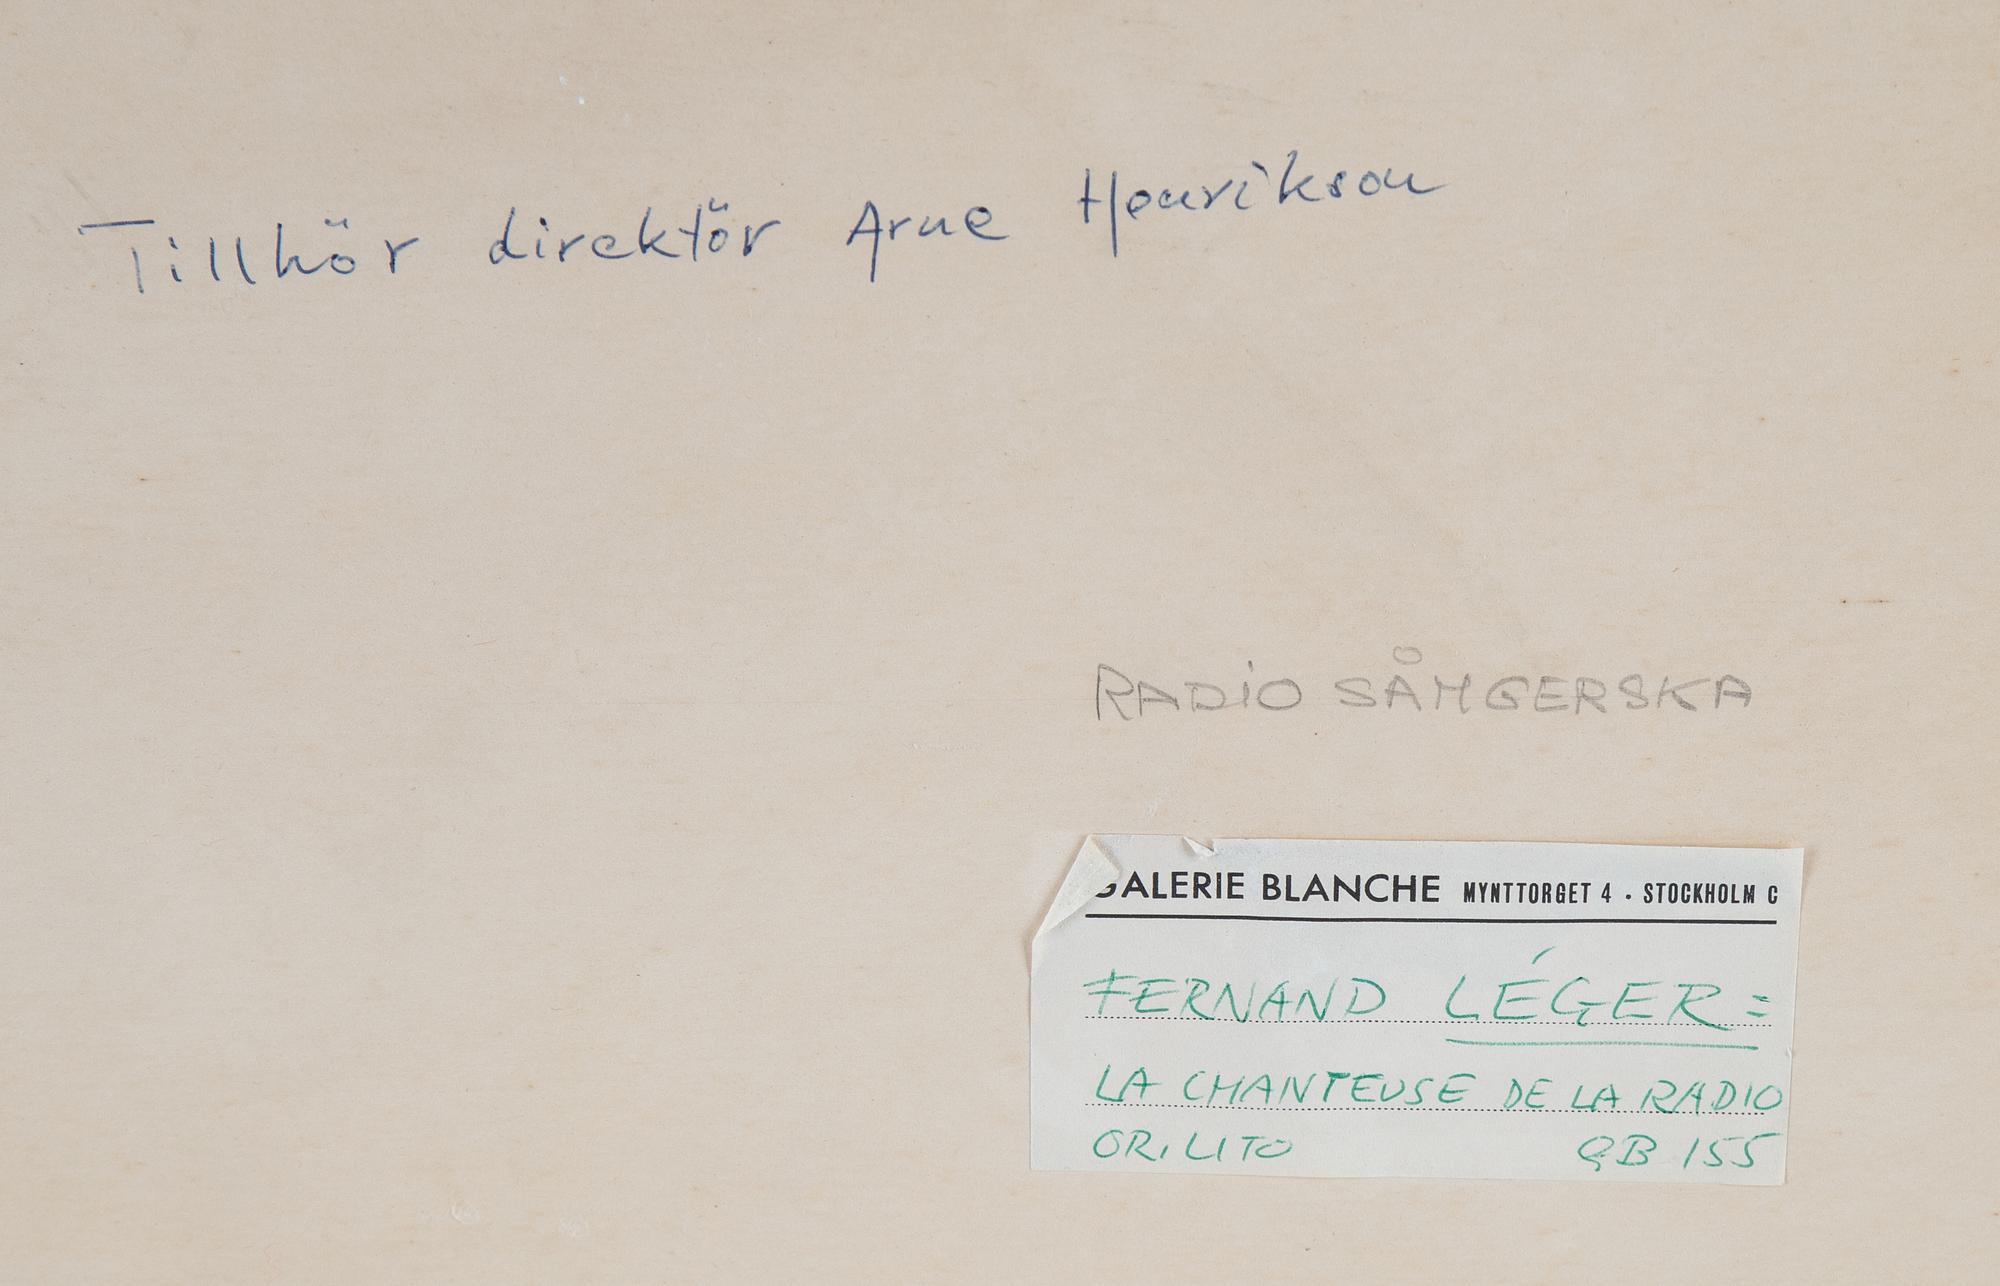 Tillhör direktör Arne Henrikson
RADIO SÅNGERSKA
GALERIE BLANCHE MYNTTORGET 4 · STOCKHOLM C
FERNAND LÉGER =
LA CHANTEUSE DE LA RADIO
OR. LITO GB 155